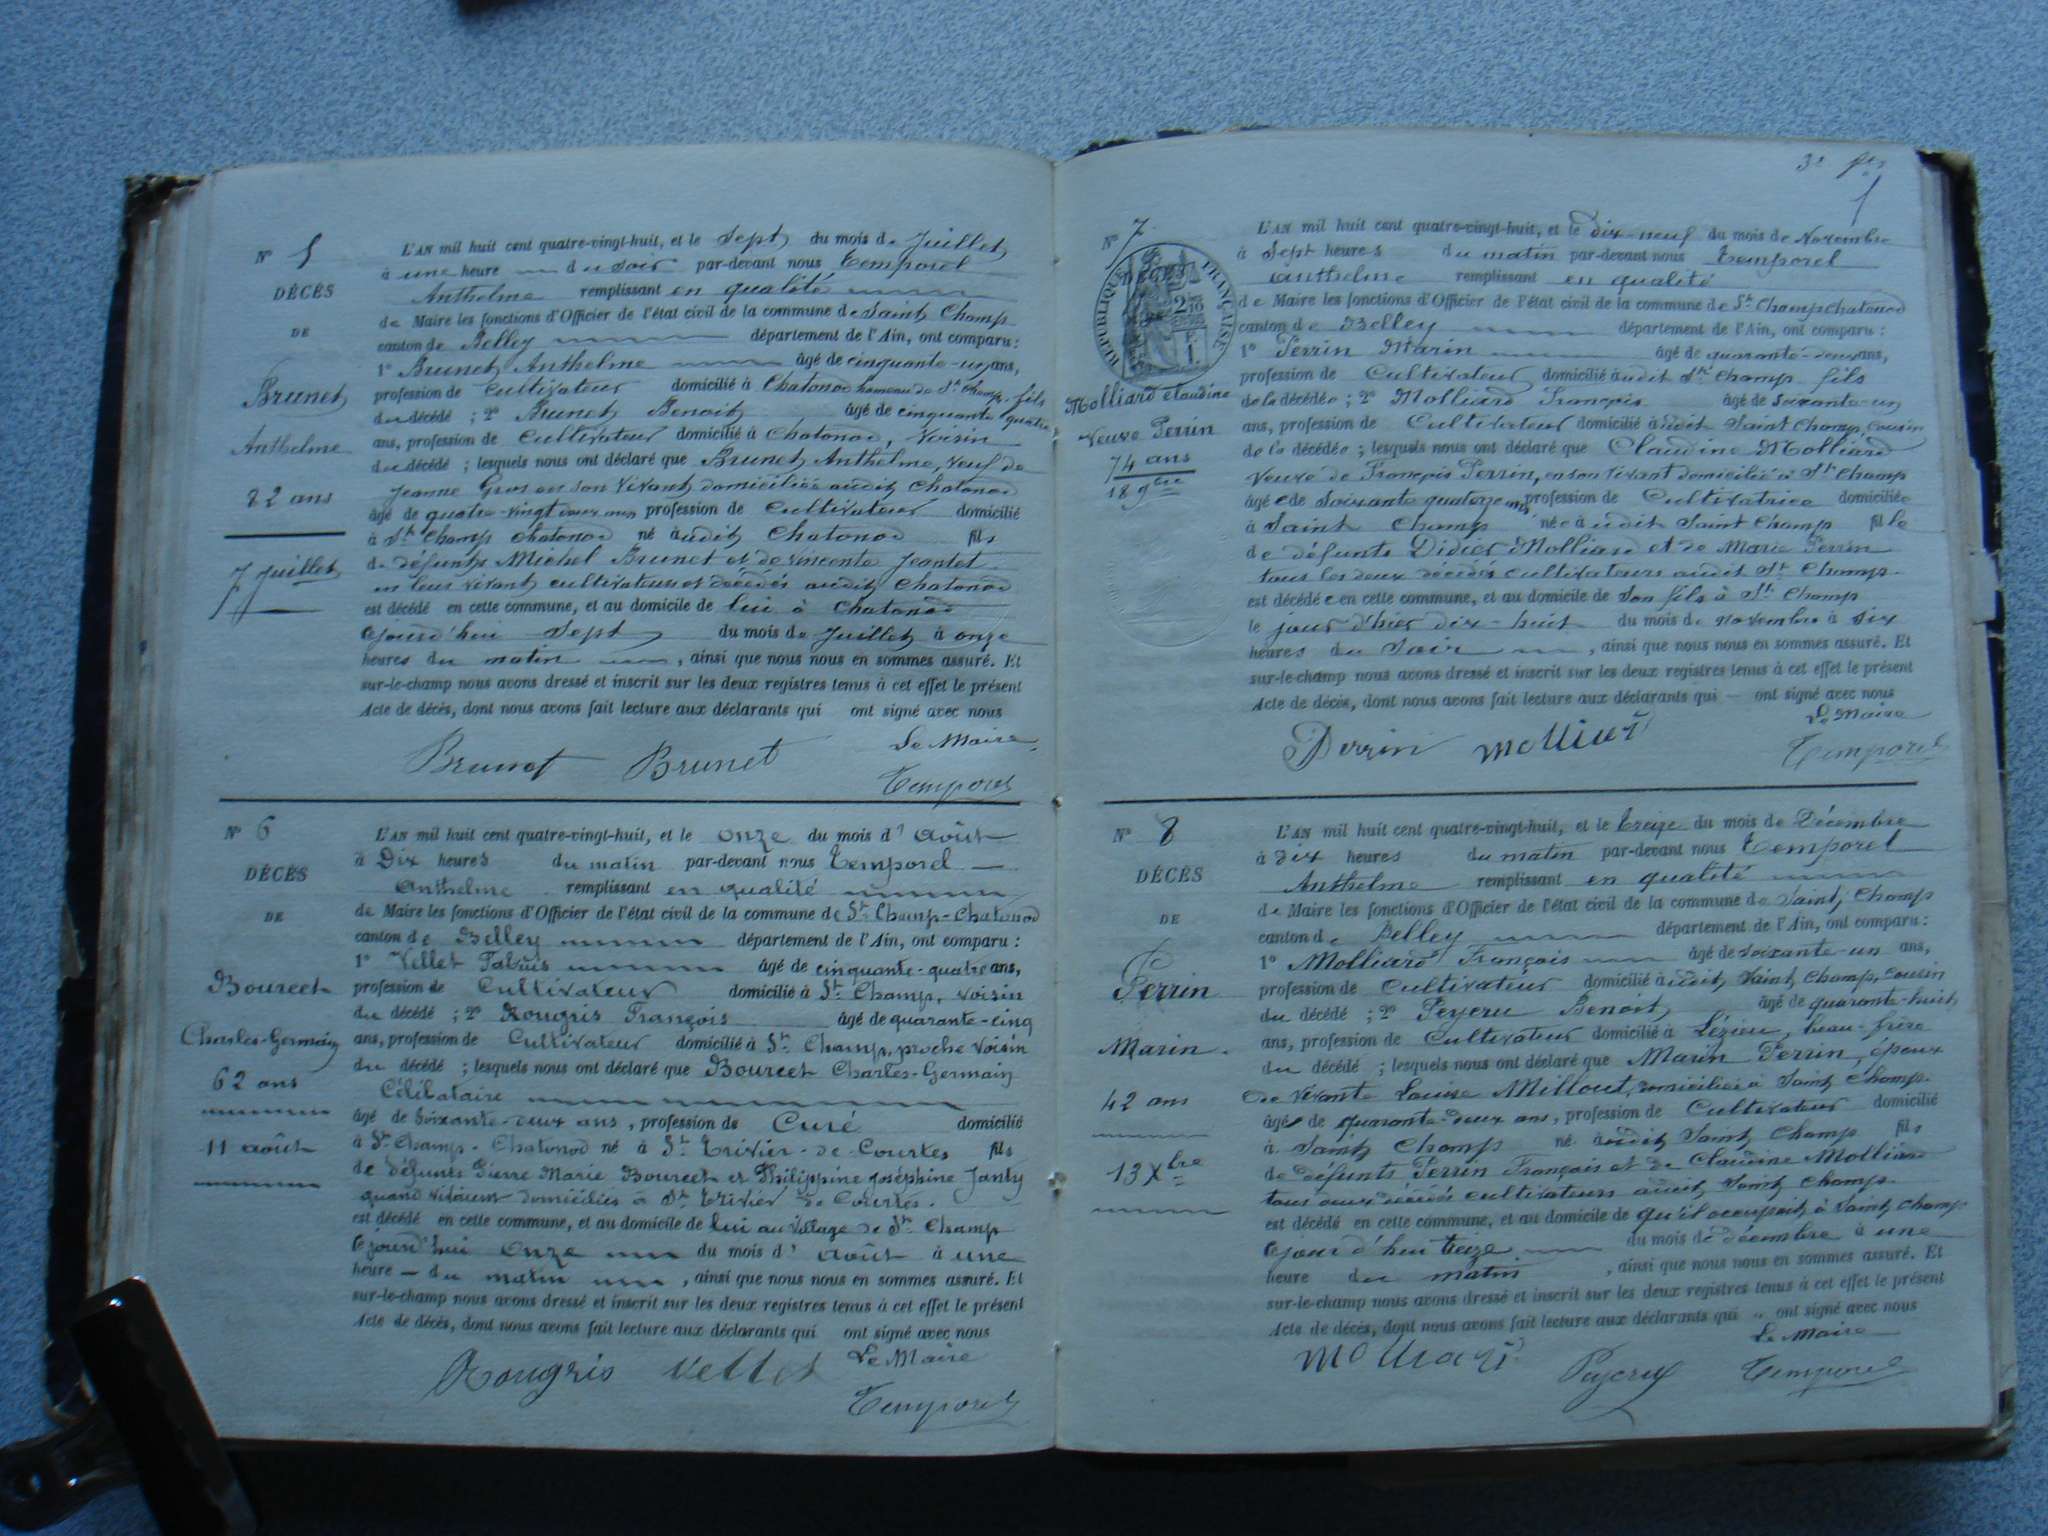 N° 5
DÉCÈS
DE
Brunet
Anthelme
82 ans
7 Juillet
L'AN mil huit cent quatre-vingt-huit, et le Sept du mois de Juillet
à une heure du soir par-devant nous Temporel
Anthelme remplissant en qualité
de Maire les fonctions d'Officier de l'état civil de la commune de Saint Champ
canton de Belley département de l'Ain, ont comparu :
1° Brunet Anthelme âgé de cinquante-un ans,
profession de Cultivateur domicilié à Chatonod hameau de St Champ, fils
du décédé ; 2° Brunet Benoit âgé de cinquante quatre
ans, profession de Cultivateur domicilié à Chatonod, voisin
du décédé ; lesquels nous ont déclaré que Brunet Anthelme, veuf de
Jeanne Gros en son vivant domicilié audit Chatonod
âgé de quatre-vingt deux ans profession de Cultivateur domicilié
à St Champ Chatonod né audit Chatonod fils
de défunts Michel Brunet et de Vincente Jeantet
en leur vivant cultivateurs et décédés audit Chatonod
est décédé en cette commune, et au domicile de lui à Chatonod
Cejourd'hui Sept du mois de Juillet à onze
heures du matin , ainsi que nous nous en sommes assuré. Et
sur-le-champ nous avons dressé et inscrit sur les deux registres tenus à cet effet le présent
Acte de décès, dont nous avons fait lecture aux déclarants qui ont signé avec nous
Le Maire
Brunet Brunet
Temporel
N° 6
DÉCÈS
DE
Bourcet
Charles-Germain
62 ans
11 août
L'AN mil huit cent quatre-vingt-huit, et le onze du mois d' Août
à Dix heures du matin par-devant nous Temporel
Anthelme remplissant en qualité
de Maire les fonctions d'Officier de l'état civil de la commune de St Champ-Chatonod
canton de Belley département de l'Ain, ont comparu :
1° Vellet âgé de cinquante-quatre ans,
profession de Cultivateur domicilié à St Champ, voisin
du décédé ; 2° Rougris François âgé de quarante-cinq
ans, profession de Cultivateur domicilié à St Champ, proche voisin
du décédé ; lesquels nous ont déclaré que Bourcet Charles-Germain
Célibataire
âgé de Soixante-deux ans, profession de Curé domicilié
à St Champ-Chatonod né à St Trivier-de-Courtes fils
de défunts Pierre Marie Bourcet et Philippine Joséphine Janty
quand vivaient domiciliés à St Trivier de Courtes.
est décédé en cette commune, et au domicile de lui au village de St Champ
Cejourd'hui onze du mois d' août à une
heure du matin , ainsi que nous nous en sommes assuré. Et
sur-le-champ nous avons dressé et inscrit sur les deux registres tenus à cet effet le présent
Acte de décès, dont nous avons fait lecture aux déclarants qui ont signé avec nous
Le Maire
Rougris Vellet
Temporel
3e
N° 7
DÉCÈS
RÉPUBLIQUE FRANÇAISE
Molliard Claudine
Veuve Perrin
74 ans
18 9bre
L'AN mil huit cent quatre-vingt-huit, et le dix-neuf du mois de Novembre
à Sept heures du matin par-devant nous Temporel
Anthelme remplissant en qualité
de Maire les fonctions d'Officier de l'état civil de la commune de St Champ Chatonod
canton de Belley département de l'Ain, ont comparu :
1° Perrin Marin âgé de quarante-deux ans,
profession de Cultivateur domicilié audit St Champ fils
de la décédée ; 2° Molliard François âgé de soixante-un
ans, profession de Cultivateur domicilié audit Saint Champ, cousin
de la décédée ; lesquels nous ont déclaré que Claudine Molliard
veuve de François Perrin, en son vivant domiciliée à St Champ
âgée de Soixante quatorze ans, profession de Cultivatrice domiciliée
à Saint Champ née audit Saint Champ fille
de défunts Didier Molliard et de Marie Perrin
tous les deux décédés cultivateurs audit St Champ.
est décédée en cette commune, et au domicile de son fils à St Champ
le jour d'hier dix-huit du mois de novembre à six
heures du Soir , ainsi que nous nous en sommes assuré. Et
sur-le-champ nous avons dressé et inscrit sur les deux registres tenus à cet effet le présent
Acte de décès, dont nous avons fait lecture aux déclarants qui — ont signé avec nous
Le Maire
Perrin Molliard
Temporel
N° 8
DÉCÈS
DE
Perrin
Marin.
42 ans
13 Xbre
L'AN mil huit cent quatre-vingt-huit, et le treize du mois de Décembre
à dix heures du matin par-devant nous Temporel
Anthelme remplissant en qualité
de Maire les fonctions d'Officier de l'état civil de la commune de Saint Champ
canton de Belley département de l'Ain, ont comparu :
1° Molliard François âgé de soixante-un ans,
profession de Cultivateur domicilié audit Saint Champ, cousin
du décédé ; 2° Peyeru Benoit âgé de quarante-huit
ans, profession de Cultivateur domicilié à Lézieu, beau-frère
du décédé ; lesquels nous ont déclaré que Marin Perrin, époux
de vivante Louise Milliout, domicilié à Saint Champ.
âgé de quarante-deux ans, profession de Cultivateur domicilié
à Saint Champ né audit Saint Champ fils
de défunts Perrin François et de Claudine Molliard
tous deux décédés cultivateurs audit Saint Champ.
est décédé en cette commune, et au domicile de qu'il occupait à Saint Champ
Cejour d'hui treize du mois de décembre à une
heure du matin , ainsi que nous nous en sommes assuré. Et
sur-le-champ nous avons dressé et inscrit sur les deux registres tenus à cet effet le présent
Acte de décès, dont nous avons fait lecture aux déclarants qui ont signé avec nous
Le Maire
Molliard Temporel